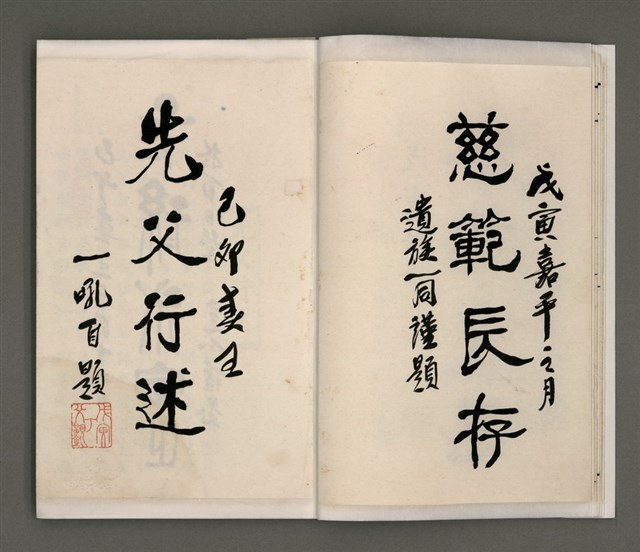 戊寅嘉平之月
慈範長存
遺族一同謹題
己卯春王
先父行述
一吼自題